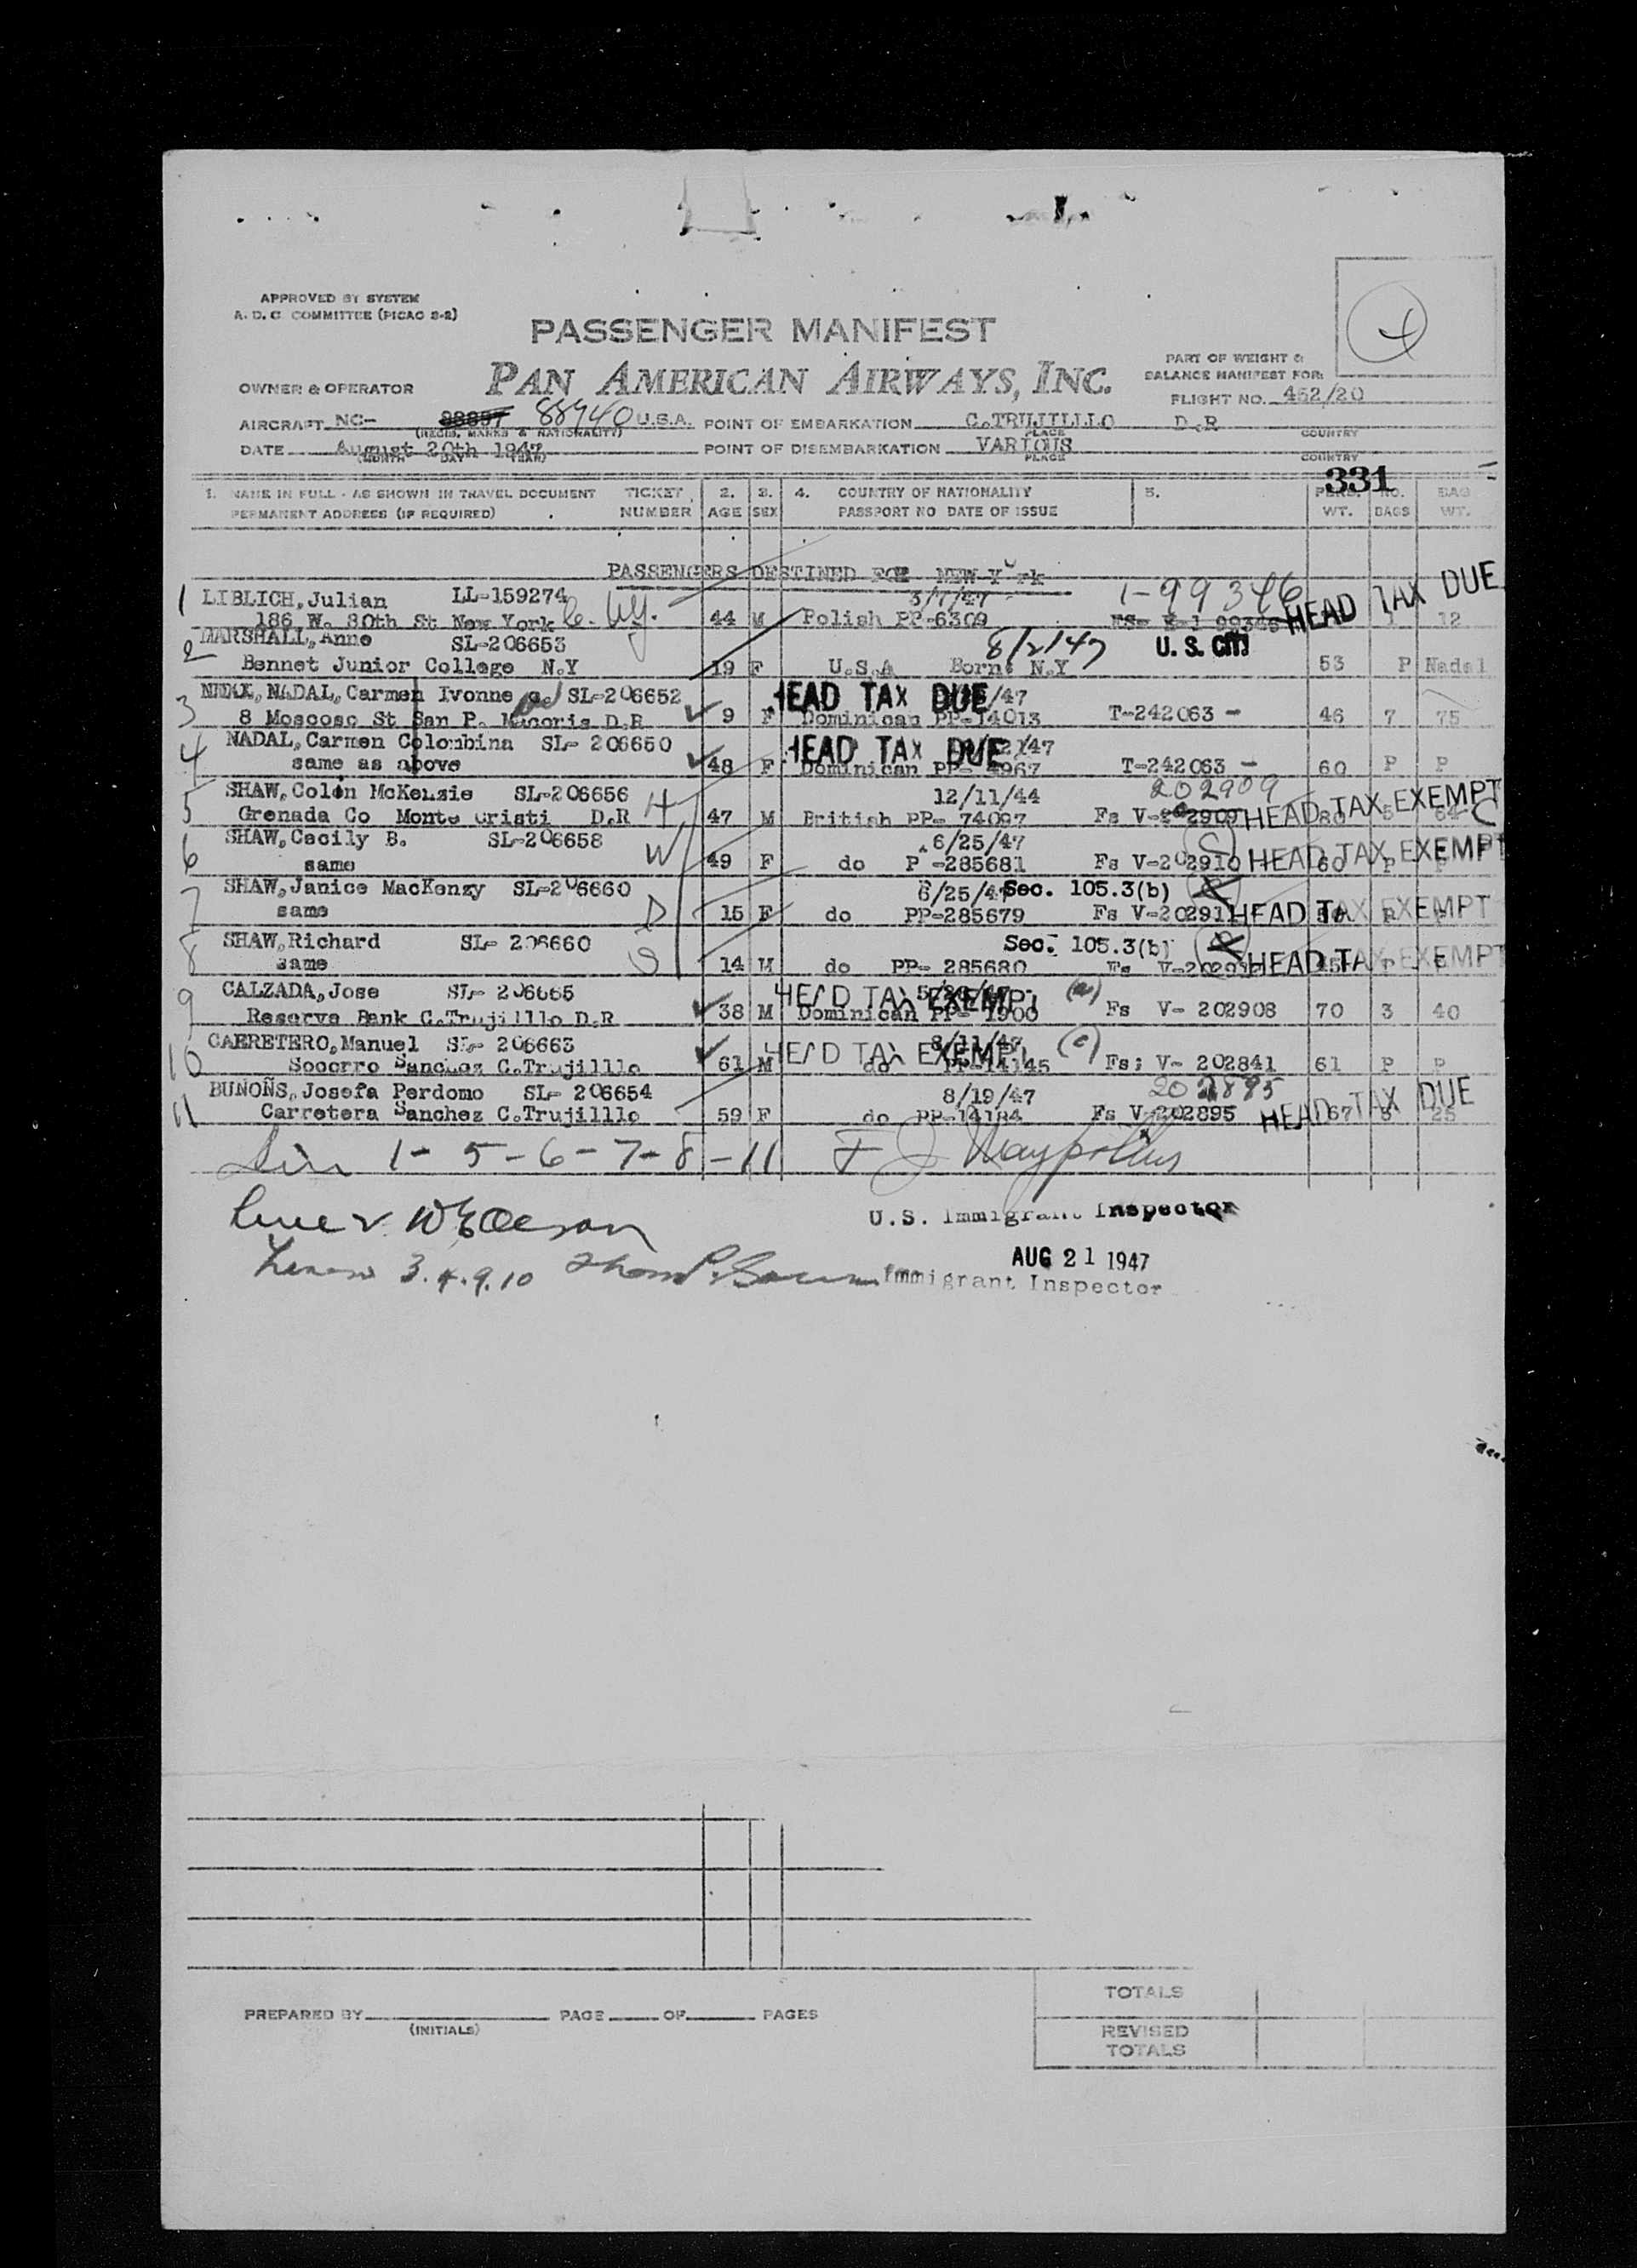 APPROVED BY SYSTEM
A. D. C. COMMITTEE (PICAO 2-2)
PASSENGER MANIFEST
PAN AMERICAN AIRWAYS, INC.
PART OF WEIGHT &
BALANCE MANIFEST FOR:
OWNER & OPERATOR
FLIGHT NO. 462/20
AIRCRAFT NC- 88857 88940 U.S.A. POINT OF EMBARKATION C.TRUJILLLO D.R
(REGIS. MARKS & NATIONALITY) PLACE COUNTRY
DATE August 20th 1947 POINT OF DISEMBARKATION VARIOUS
(MONTH DAY YEAR) PLACE COUNTRY
331
1. NAME IN FULL - AS SHOWN IN TRAVEL DOCUMENT TICKET 2. 3. 4. COUNTRY OF NATIONALITY 5. NO. BAG
PERMANENT ADDRESS (IF REQUIRED) NUMBER AGE SEX PASSPORT NO DATE OF ISSUE WT. BAGS WT.
PASSENGERS DESTINED FOR NEW York
1 LIBLICH, Julian LL-159274 3/7/47 1-99346 HEAD TAX DUE
186 W. 80th St New York 44 M Polish PP-6309 1 12
2 MARSHALL, Anne SL-206653 8/2/47 U.S. CITI
Bennet Junior College N.Y 19 F U.S.A Born: N.Y 53 P Nadal
3 NADAL, Carmen Ivonne SL-206652 HEAD TAX DUE /47
8 Moscoso St San P. Macoris D.R 9 F Dominican PP-14013 T-242063 - 46 7 75
4 NADAL, Carmen Colombina SL- 206650 HEAD TAX DUE 2/47
same as above 48 F Dominican PP- 4967 T-242063 - 60 P P
5 SHAW, Colin McKenzie SL-206656 12/11/44 202909
Grenada Co Monte Cristi D.R H 47 M British PP- 74097 Fs V-202909 HEAD TAX EXEMPT 80 5 64 C
6 SHAW, Cecily B. SL-206658 6/25/47
same W 49 F do P -285681 Fs V-202910 HEAD TAX EXEMPT 60 P
7 SHAW, Janice MacKenzy SL-206660 6/25/47 Sec. 105.3(b)
same D 15 F do PP-285679 Fs V-202911 HEAD TAX EXEMPT
8 SHAW, Richard SL- 206660 Sec. 105.3(b)
same S 14 M do PP- 285680 Fs V-202912 HEAD TAX EXEMPT
9 CALZADA, Jose SL- 206665 HEAD TAX EXEMPT
Reserve Bank C.Trujilllo D.R 38 M Dominican PP- 1900 Fs V- 202908 70 3 40
10 CARRETERO, Manuel SL- 206663 HEAD TAX EXEMPT 8/11/47 (c)
Socorro Sanchez C.Trujilllo 61 M do PP-14145 Fs: V- 202841 61 P P
11 BUNOÑS, Josefa Perdomo SL- 206654 8/19/47 202895
Carretera Sanchez C.Trujilllo 59 F do PP-14184 Fs V-202895 HEAD TAX DUE 67 3 25
1- 5-6-7-8-11 F J
U.S. Immigrant Inspector
AUG 21 1947
3.4.9.10 Immigrant Inspector
TOTALS
PREPARED BY PAGE OF PAGES
(INITIALS)
REVISED
TOTALS